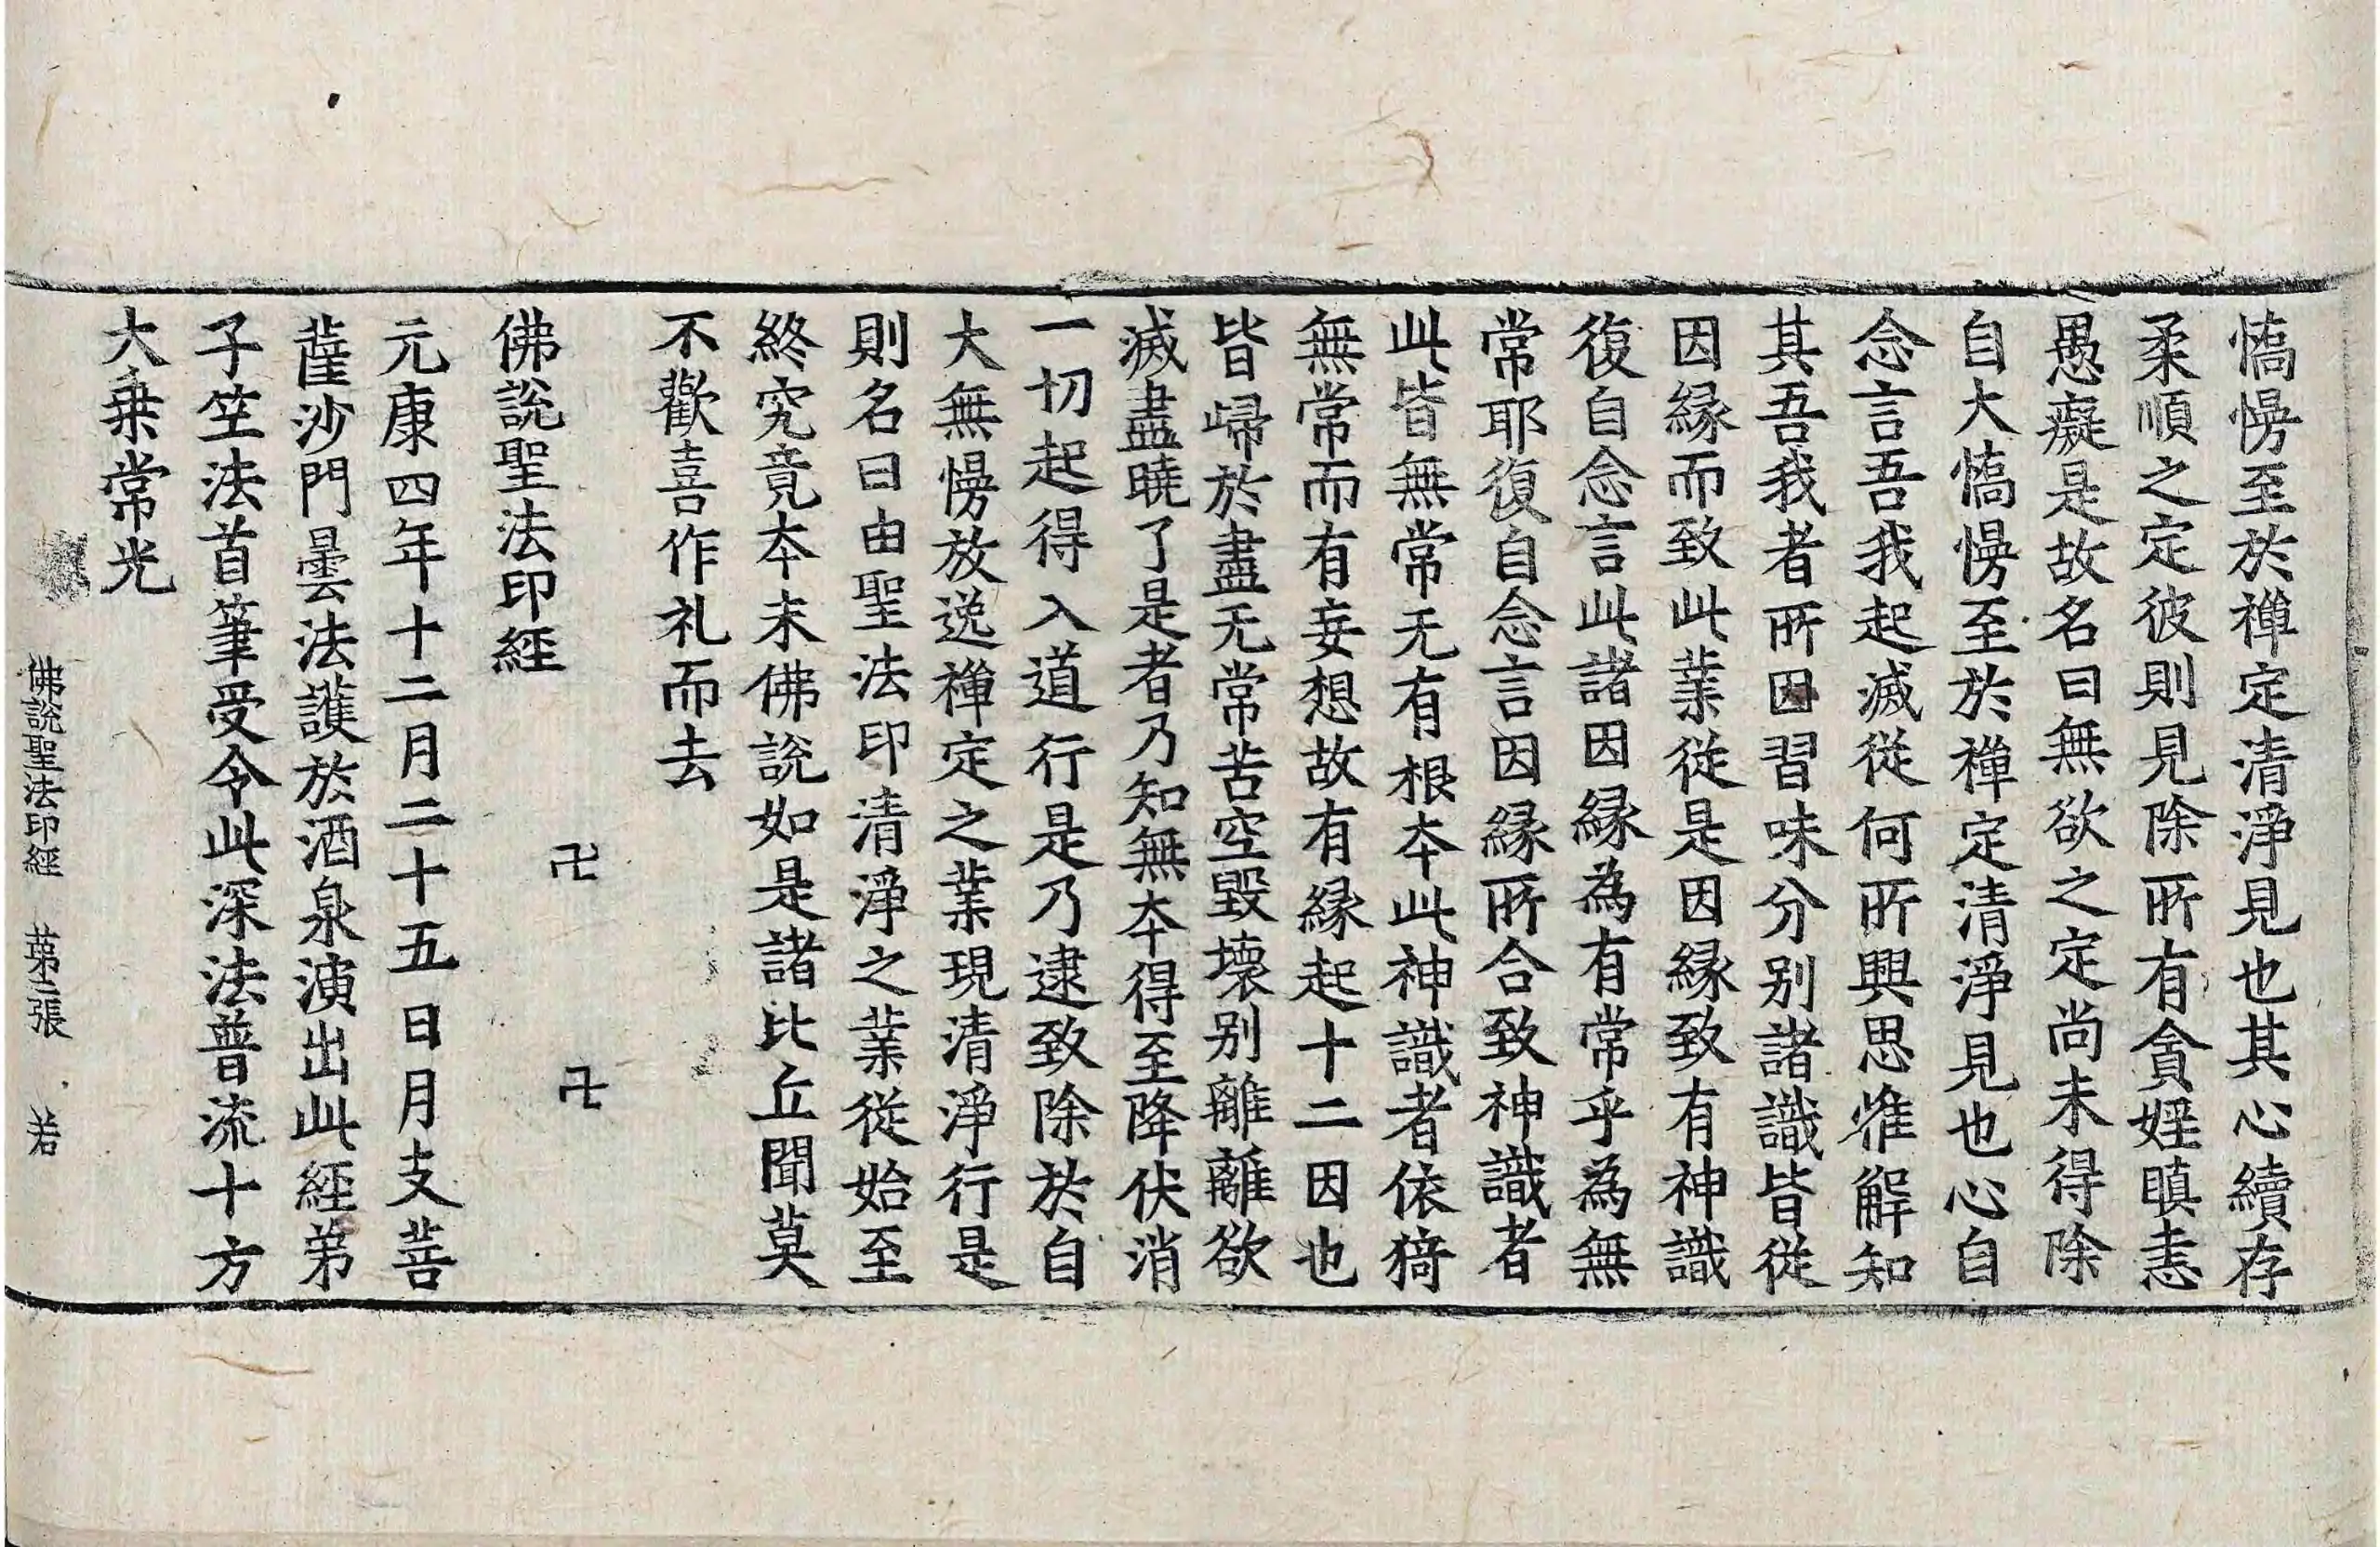 憍慢至於禪定清淨見也其心續存
柔順之定彼則見除所有貪婬瞋恚
愚癡是故名曰無欲之定尚未得除
自大憍慢至於禪定清淨見也心自
念言吾我起滅從何所興思惟解知
其吾我者所因習味分别諸識皆從
因緣而致此業從是因緣致有神識
復自念言此諸因緣為有常乎為無
常耶復自念言因緣所合致神識者
此皆無常无有根本此神識者依猗
無常而有妄想故有緣起十二因也
皆歸於盡无常苦空毀壞别離離欲
滅盡曉了是者乃知無本得至降伏消
一切起得入道行是乃逮致除於自
大無慢放逸禪定之業現清淨行是
則名曰由聖法印清淨之業從始至
終究竟本末佛說如是諸比丘聞莫
不歡喜作礼而去
佛說聖法印經
卍
卍
元康四年十二月二十五日月支菩
薩沙門曇法護於酒泉演出此經弟
子竺法首筆受令此深法普流十方
大乗常光
佛說聖法印經 苐二張 若